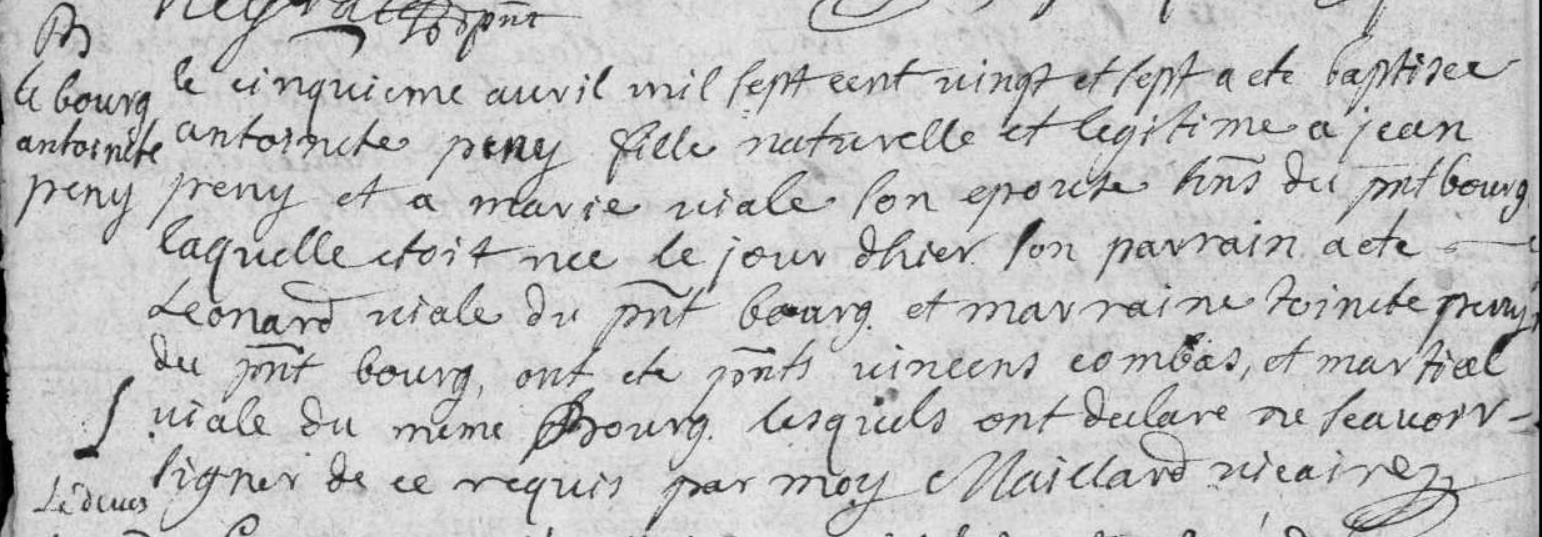 pnt
B
le bourg
antoinete
peny
le cinquieme auvril mil sept cent vingt et sept a ete baptisee
antoinete peny fille naturelle et legitime a jean
peny et a marie viale son epouse hñs du pnt bourg
laquelle etoit nee le jour dhier son parrain a ete
Leonard viale du pnt bourg et marraine toinete peny
du pnt bourg, ont ete pnts vincens combas, et martial
viale du meme Bourg lesquels ont declare ne scavoir
signer de ce requis par moy Maillard vicaire